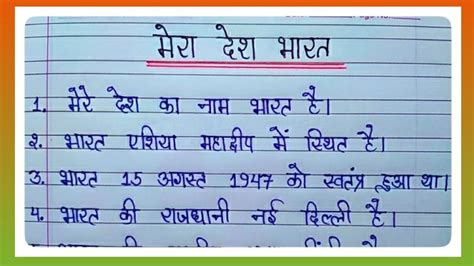 मेरा देश भारत
1. मेरे देश का नाम भारत है।
२. भारत एशिया महाद्वीप में स्थित है।
3. भारत 15 अगस्त 1947 को स्वतंत्र हुआ था।
4. भारत की राजधानी नई दिल्ली है।